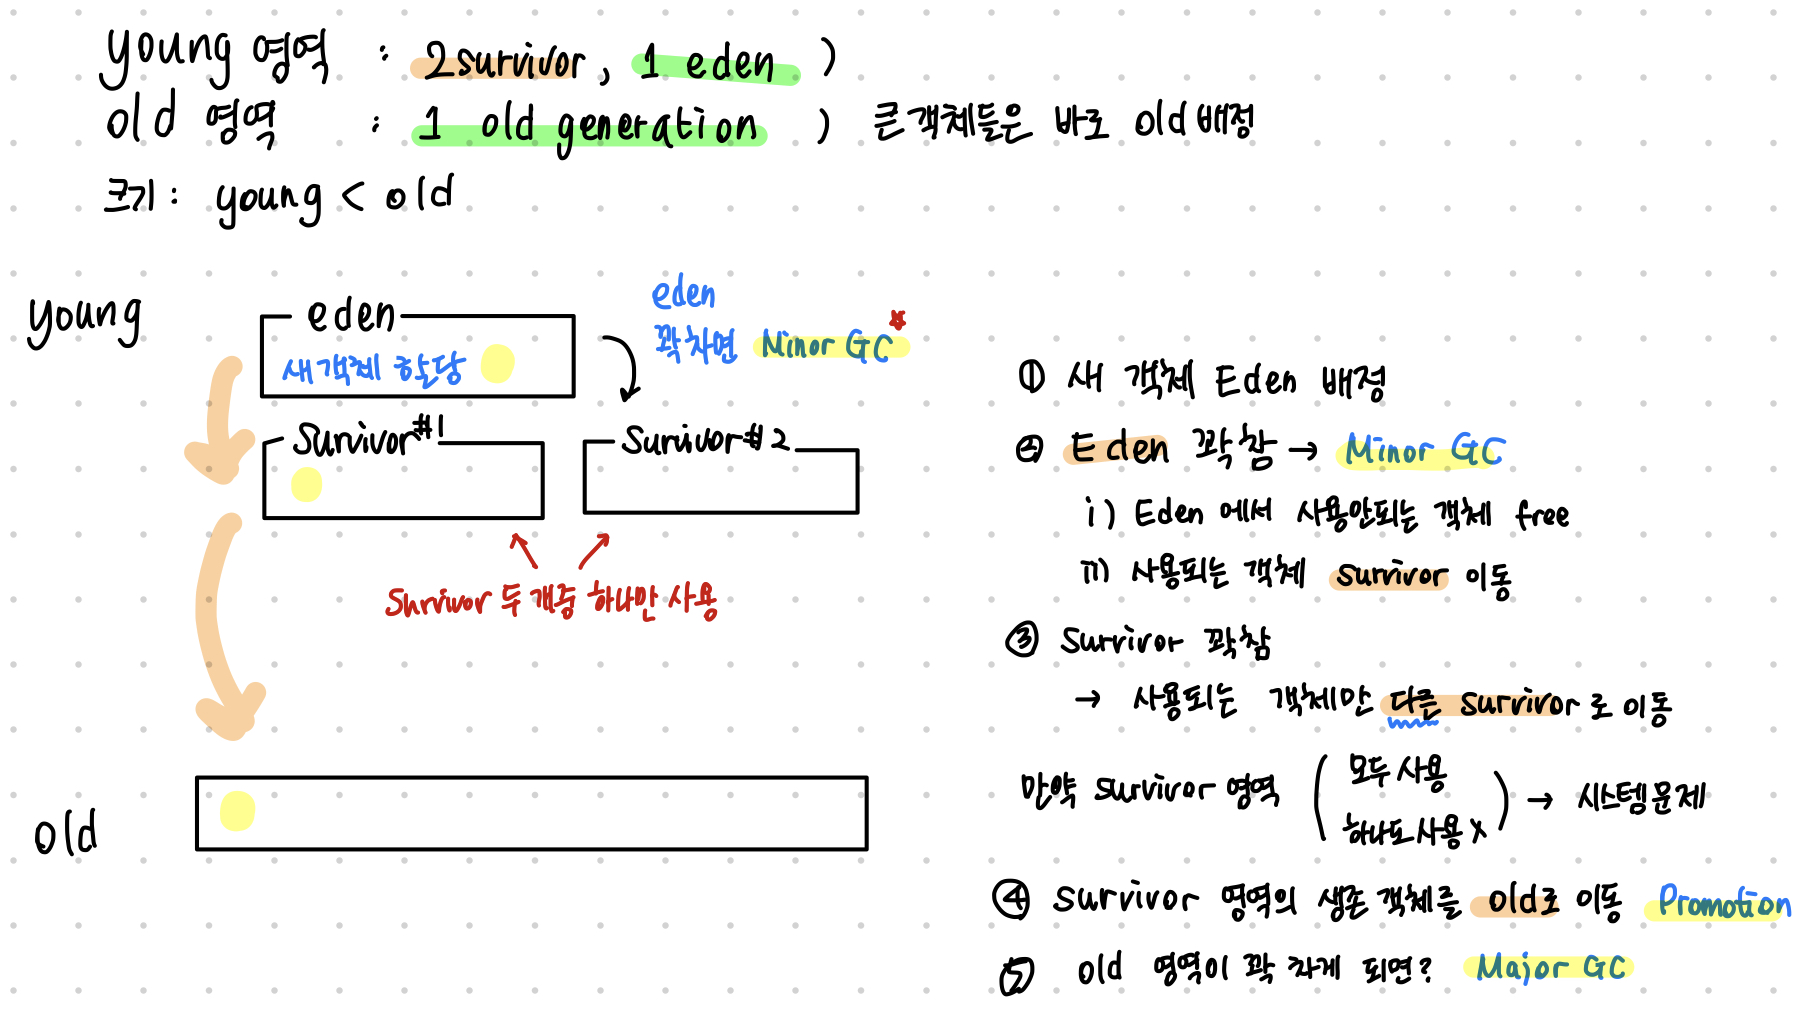 young 영역 : 2 survivor, 1 eden )
old 영역 : 1 old generation ) 큰 객체들은 바로 old 배정
크기 : young < old
young
eden
새 객체 할당
eden
꽉 차면 Minor GC
Survivor #1
Survivor #2
Survivor 두 개중 하나만 사용
old
① 새 객체 Eden 배정
② Eden 꽉 참 → Minor GC
i) Eden 에서 사용안되는 객체 free
ii) 사용되는 객체 survivor 이동
③ Survivor 꽉 참
→ 사용되는 객체만 다른 survivor로 이동
만약 survivor 영역 ( 모두 사용
하나도 사용 X ) → 시스템 문제
④ survivor 영역의 생존 객체를 old로 이동 Promotion
⑤ old 영역이 꽉 차게 되면? Major GC